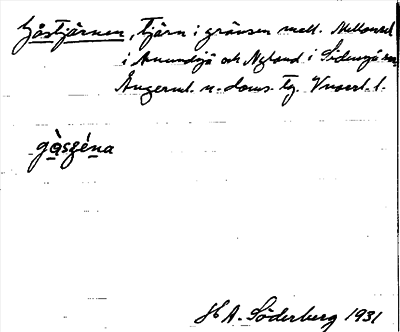 Gåstjärnen, tjärn i gränsen mell. Mellansel
i Anundsjö och Nyland i Sidensjö sn,
Ångerml. n. doms. tg. Vnorrl. l.
gåszéna
H A. Söderberg 1931